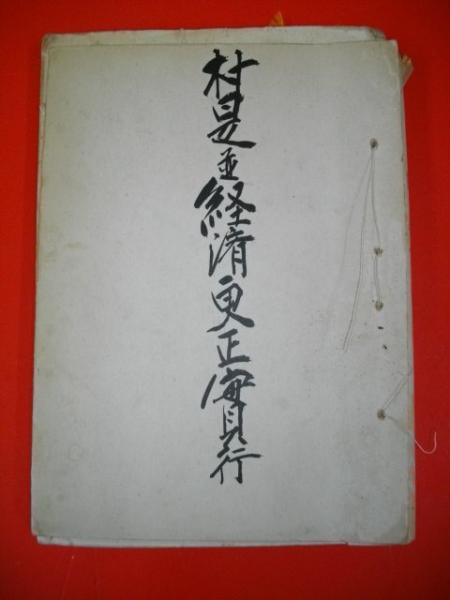 村是並経済更正實行